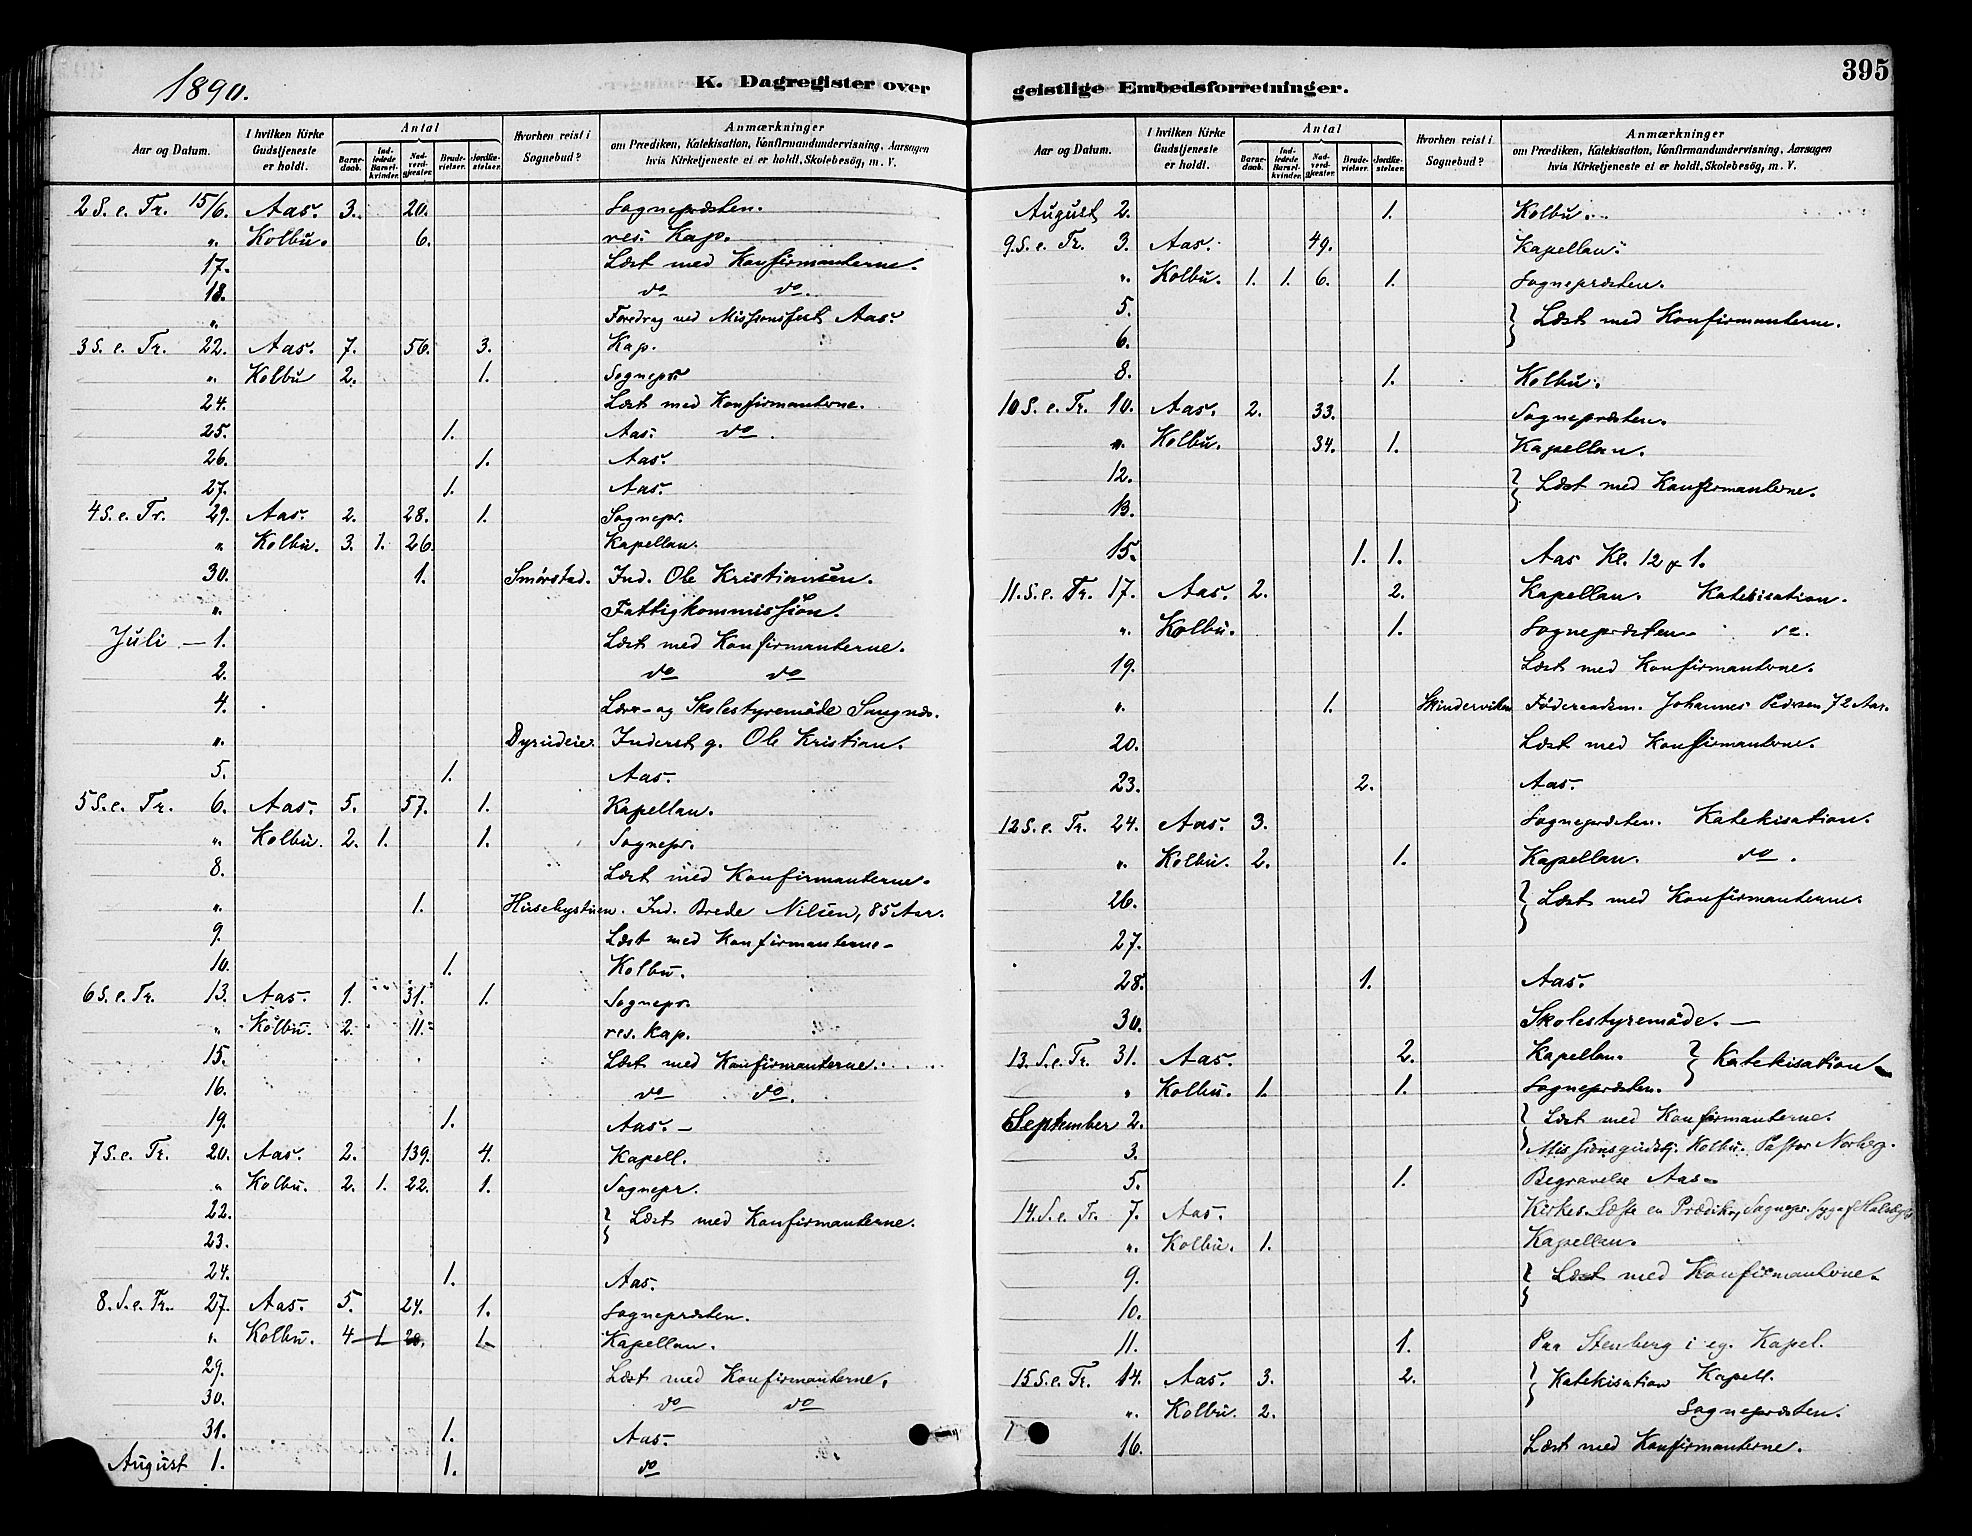 1890.
K. Dagregister over
Aar og Datum. | I hvilken Kirke Gudstjeneste er holdt. | Antal | Barne-daab. | Ind-ledede Barsel-kvinder. | Nad-verd-gjester. | Brude-vielser. | Jordfæ-stelser. | Hvorhen reist i Sognebud? | Anmærkninger om Prædiken, Katekisation, Konfirmandundervisning, Aarsagen hvis Kirketjeneste ei er holdt, Skolebesøg, m. V.
2 S. e. Tr. 15/6. Aas. 3. 20. Sognepræsten.
„ Kolbu. 6. res. Kap.
17. Læst med Konfirmanterne.
18. do do.
„ Foredrag ved Missionsfest Aas.
3 S. e. Tr. 22. Aas. 7. 56. 3. Kap.
„ Kolbu 2. 1. Sognepr.
24. Læst med Konfirmanterne.
25. 1. Aas. do.
26. 1. Aas.
27. 1. Aas.
4 S. e. Tr. 29. Aas. 2. 28. 1. Sognepr.
„ Kolbu. 3. 1. 26. Kapellan.
30. 1. Smørstad. Ind. Ole Kristiansen.
„ Fattigkommission.
Juli — 1. Læst med Konfirmanterne.
2. do do
4. Lærer- og Skolestyremøde Sangnæs.
„ Dyrudeie. Inderst g. Ole Kristian.
5. 1. Aas.
5 S. e. Tr. 6. Aas. 5. 57. 1. Kapellan.
„ Kolbu. 2. 1. 1. Sognepr.
8. Læst med Konfirmanterne.
„ 1. Husebystuen. Ind. Brede Nilsen, 85 Aar.
9. Læst med Konfirmanterne
10. 1. Kolbu.
6 S. e. Tr. 13. Aas. 1. 31. 1. Sognepr.
„ Kolbu. 2. 11. res. Kap.
15. Læst med Konfirmanterne.
16. do do.
19. 1. Aas. —
7 S. e. Tr. 20. Aas. 2. 139. 4. Kapell.
„ Kolbu. 2. 1. 22. 1. Sognepr.
22. } Læst med Konfirmanterne.
23.
24. 1. Aas.
8. S. e. Tr. 27. Aas. 5. 24. 1. Sognepræsten.
„ Kolbu. 4 1 20. 1 Kapellan.
29. Læst med Konfirmanterne.
30. do do
31. 1. Aas.
August 1. 1. do
geistlige Embedsforretninger. 395
Aar og Datum. | I hvilken Kirke Gudstjeneste er holdt. | Antal | Barne-daab. | Ind-ledede Barsel-kvinder. | Nad-verd-gjester. | Brude-vielser. | Jordfæ-stelser. | Hvorhen reist i Sognebud? | Anmærkninger om Prædiken, Katekisation, Konfirmandundervisning, Aarsagen hvis Kirketjeneste ei er holdt, Skolebesøg, m. V.
August 2. 1. Kolbu.
9. S. e. Tr. 3. Aas. 49. Kapellan.
„ Kolbu. 1. 1. 6. 1. Sognepræsten.
5. } Læst med Konfirmanterne.
6.
8. 1. Kolbu.
10 S. e. Tr. 10. Aas. 2. 33. Sognepræsten.
„ Kolbu. 34. 1. Kapellan.
12. } Læst med Konfirmanterne.
13.
15. 1. 1. Aas Kl. 12 & 1.
11. S. e. Tr. 17. Aas. 2. 2. Kapellan. Katekisation.
„ Kolbu. 1. Sognepræsten do.
19. Læst med Konfirmanterne.
„ 1. Skindervilen Føderaadsm. Johannes Pedersen 72 Aar.
20. Læst med Konfirmanterne.
23. 2. Aas.
12 S. e. Tr. 24. Aas. 3. Sognepræsten. Katekisation.
„ Kolbu. 2. 1. Kapellan. do.
26. } Læst med Konfirmanterne.
27.
28. 1. Aas.
30. Skolestyremøde. —
13. S. e. Tr. 31. Aas. 2. Kapellan. } Katekisation
„ Kolbu. 1. 1. Sognepræsten.
September 2. } Læst med Konfirmanterne.
3. Missionsgudstj. Kolbu. Pastor Norberg.
5. 1. Begravelse Aas
14. S. e. Tr. 7. Aas. Kirkes. Læste en Prædik., Sognepr. syg af Halsbyld
„ Kolbu. 1. Kapellan.
9. } Læst med Konfirmanterne.
10.
11. 1. Paa Stenberg i eg. Kapel.
15 S. e. Tr. 14. Aas. 3. 2. } Katekisation Kapell.
„ Kolbu. 2. Sognepræsten.
16. Læst med Konfirmanterne.